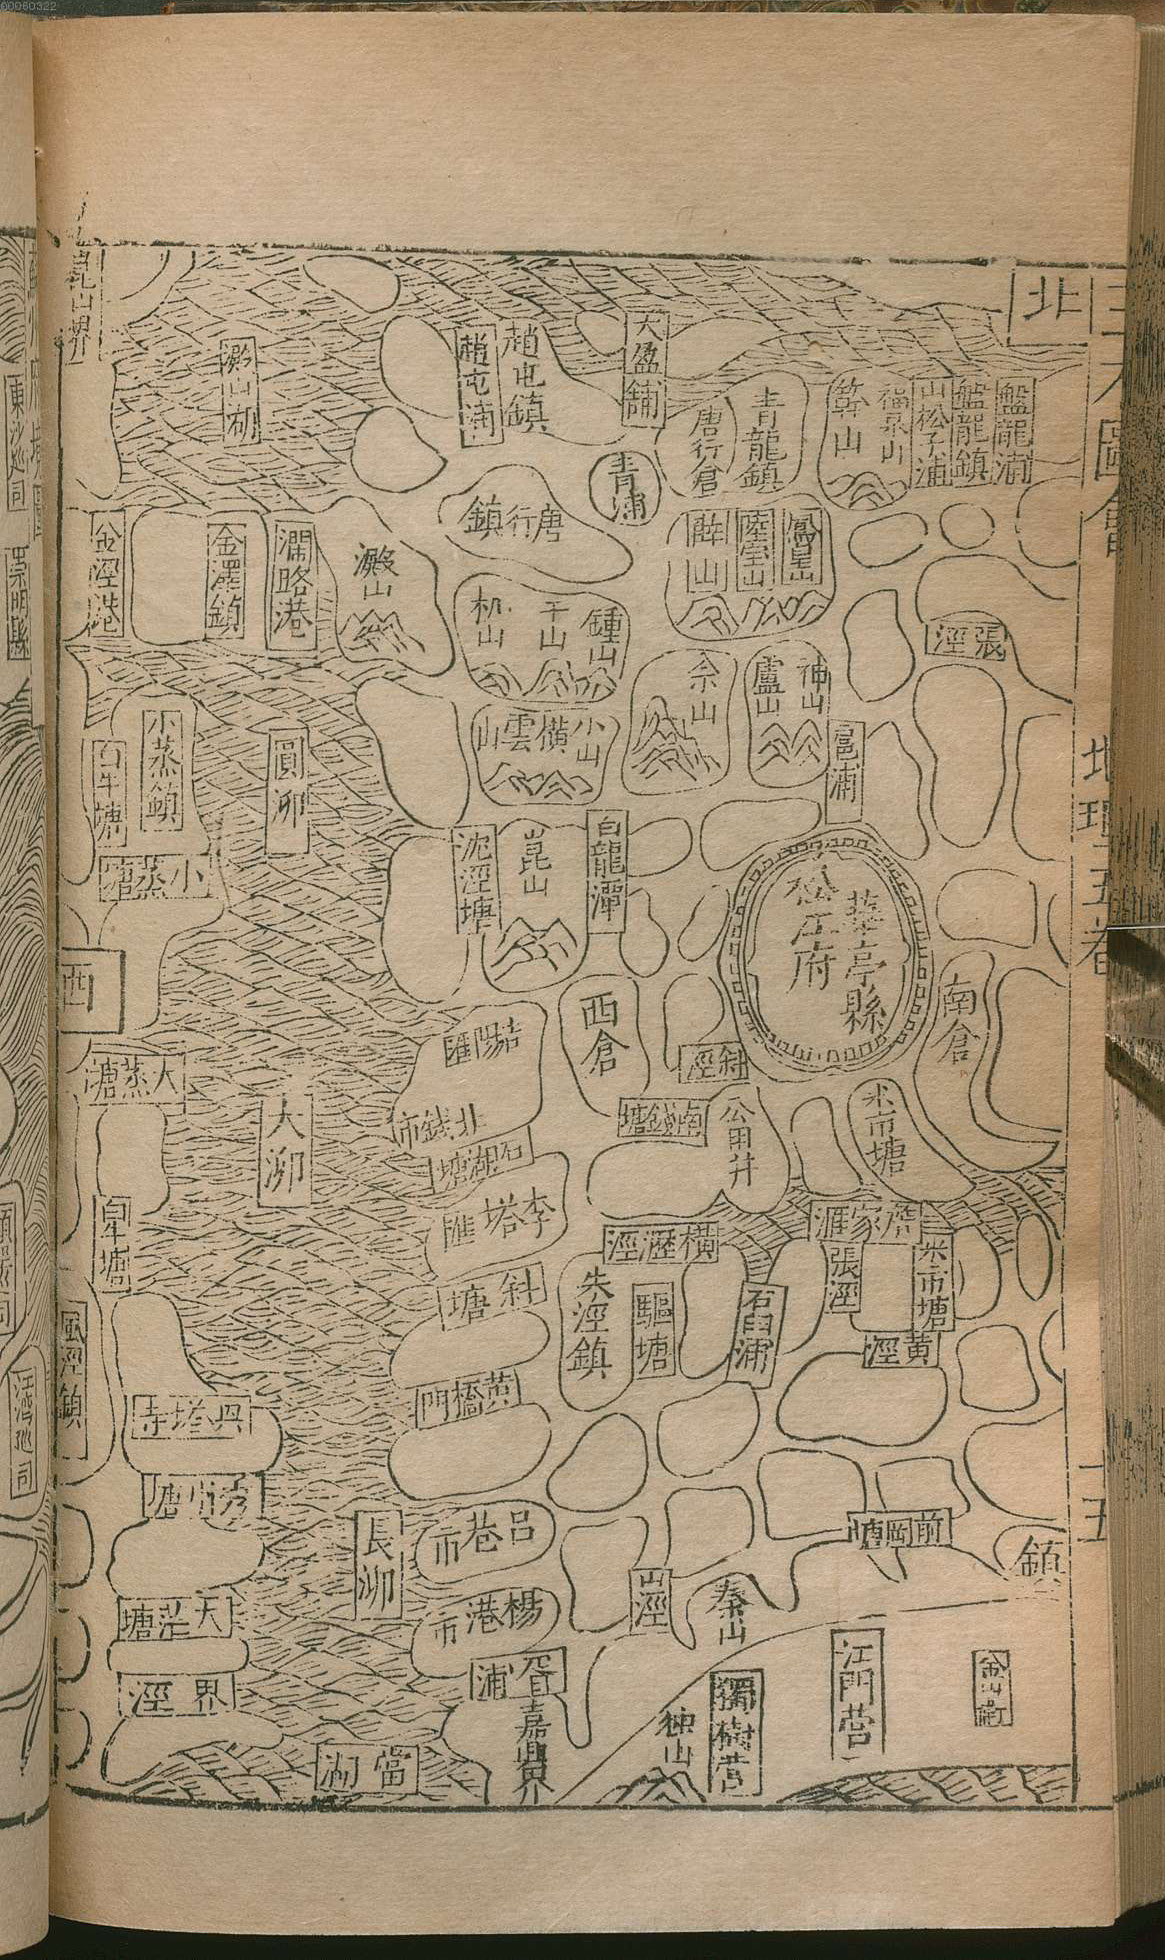 00060322
北
三才圖會
地理五卷
十五
盤龍浦
盤龍鎮
山松子浦
福泉山
簳山
青龍鎮
唐行倉
大盈鋪
趙屯鎮
趙屯浦
澱山湖
青浦
唐行鎮
鳳皇山
陸宝山
薛山
澱山
瀾路港
金澤鎮
金涇港
張涇
鍾山
干山
机山
神山
盧山
佘山
小山
橫雲山
邑浦
圓泖
小蒸鎮
白牛塘
小蒸塘
白龍潭
崑山
沈涇塘
華亭縣
松江府
南倉
西
西倉
斜涇
大蒸塘
大泖
北錢市
石湖塘
南錢塘
米市塘
李塔匯
橫瀝涇
張涇
米市塘
黃涇
石臼浦
驅塘
朱涇鎮
斜塘
白牛塘
風涇鎮
黃橋門
長泖
呂巷市
楊港市
前岡塘
鎮
山涇
秦山
大茫塘
界涇
當湖
浦
嘉興界
独山
獨樹營
江門營
東沙巡司
崇明縣